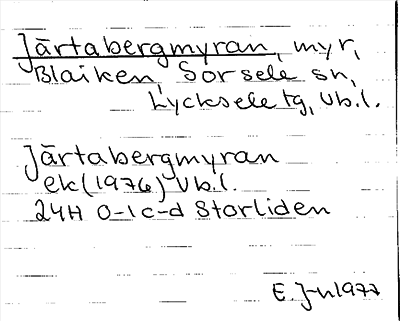 Järtabergmyran, myr,
Blaiken, Sorsele sn,
Lycksele tg, Vb.l.
Järtabergmyran
ek (1976) Vb.l.
24H 0-1c-d Storliden
E. J-n 1977